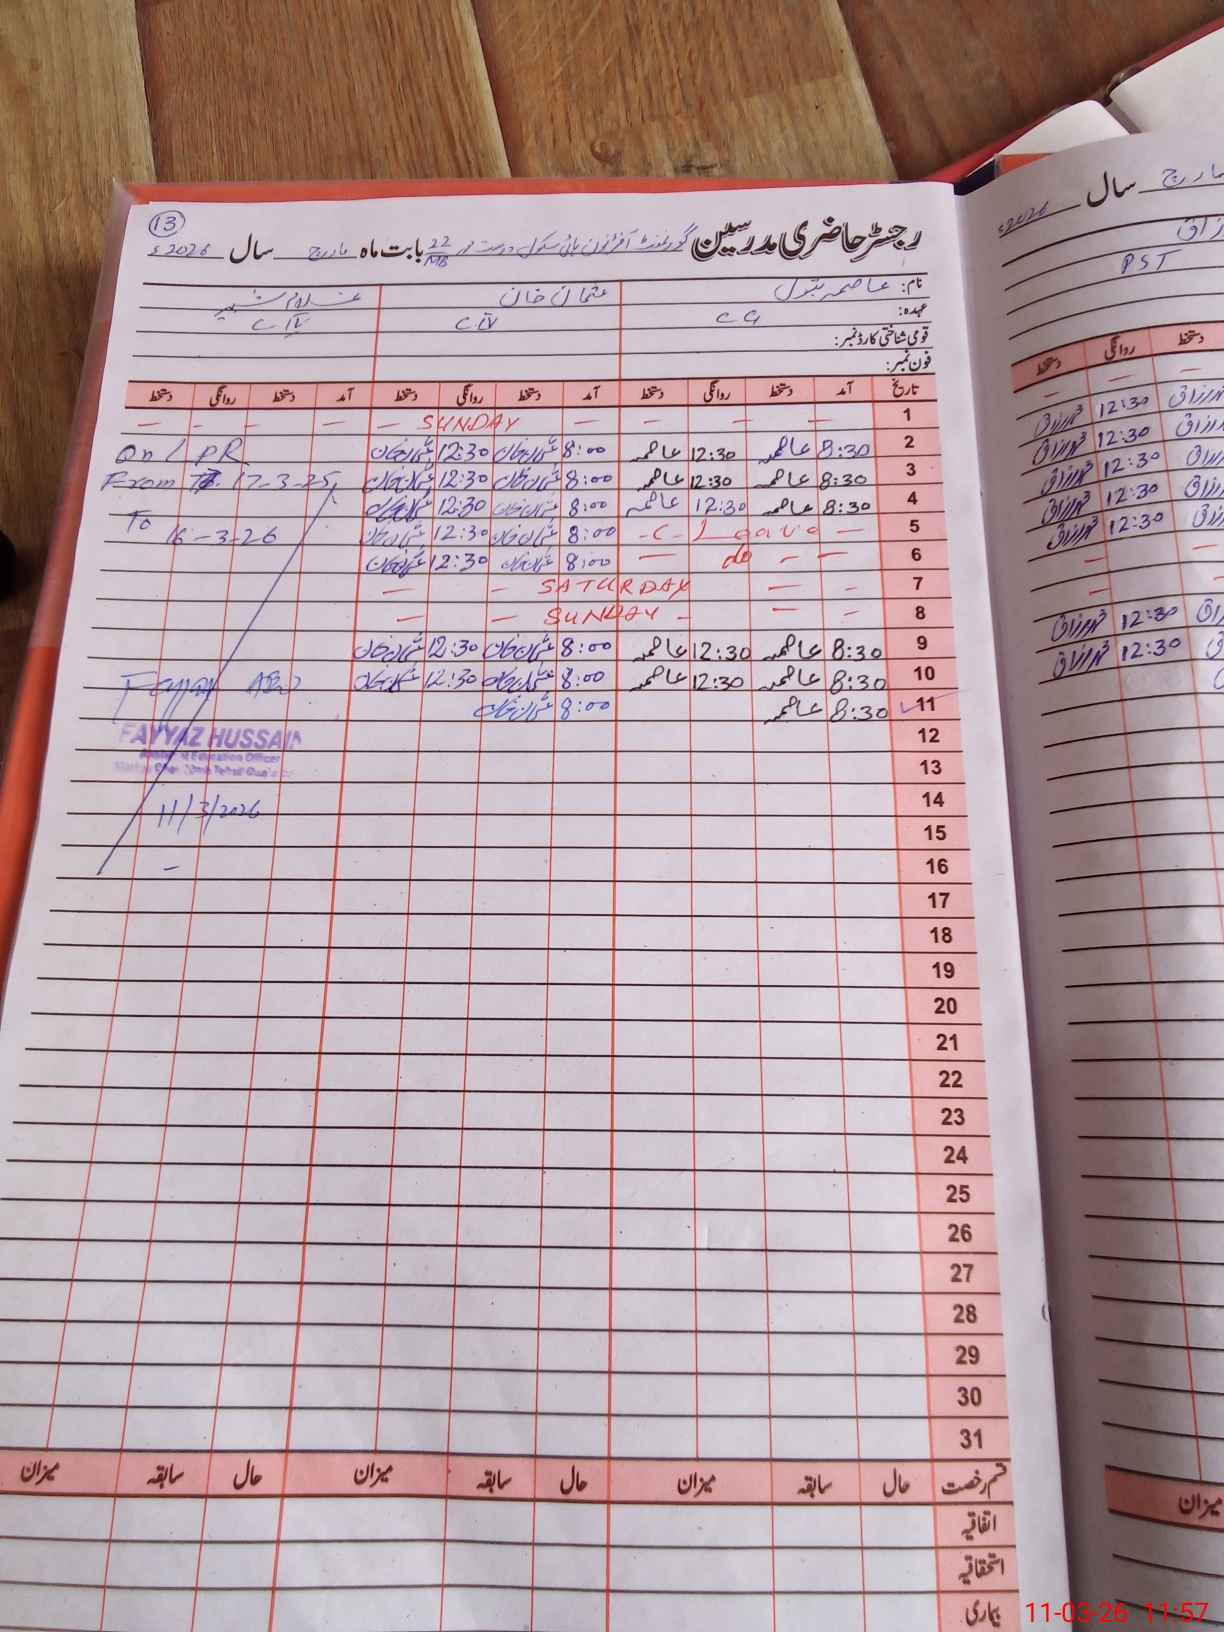 13
رجسٹر حاضری مدرسین گورنمنٹ آفرنون ہائی سکول درست نمبر 22/MB بابت ماہ مارچ سال 2026ء
نام: عاصمہ بتول عثمان خان غلام شبیر
عہدہ: C G C IV C IV
قومی شناختی کارڈ نمبر:
فون نمبر:
تاریخ آمد دستخط روانگی دستخط آمد دستخط روانگی دستخط آمد دستخط روانگی دستخط
1 — — — — SUNDAY — — — —
2 8:30 عاصمہ 12:30 عاصمہ 8:00 عثمان خان 12:30 عثمان خان On LPR
3 8:30 عاصمہ 12:30 عاصمہ 8:00 عثمان خان 12:30 عثمان خان From 17-3-25
4 8:30 عاصمہ 12:30 عاصمہ 8:00 عثمان خان 12:30 عثمان خان To
5 — C - Leave — 8:00 عثمان خان 12:30 عثمان خان 16-3-26
6 — — do — 8:00 عثمان خان 12:30 عثمان خان
7 — — SATURDAY — —
8 — — SUNDAY — —
9 8:30 عاصمہ 12:30 عاصمہ 8:00 عثمان خان 12:30 عثمان خان
10 8:30 عاصمہ 12:30 عاصمہ 8:00 عثمان خان 12:30 عثمان خان
11 8:30 عاصمہ 8:00 عثمان خان
FAYYAZ HUSSAIN
Education Officer
12
13
14
11/3/2026
15
16
17
18
19
20
21
22
23
24
25
26
27
28
29
30
31
قسم رخصت حال سابقہ میزان حال سابقہ میزان حال سابقہ میزان
اتفاقیہ
استحقاقیہ
بیماری
مارچ سال 2026ء
PST
دستخط روانگی دستخط
12:30
12:30
12:30
12:30
12:30
12:30
12:30
میزان
11-03-26 11:57